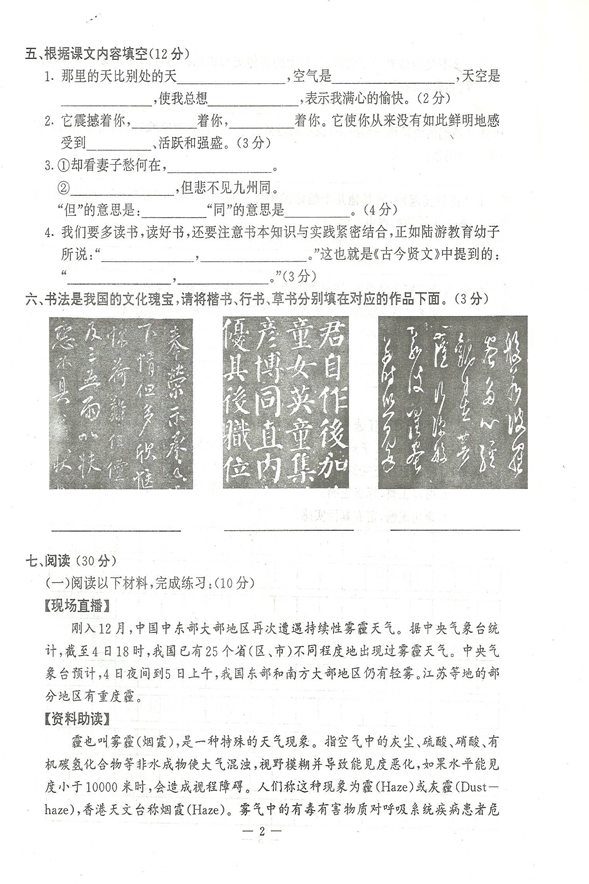 五、根据课文内容填空(12分)
1. 那里的天比别处的天________________,空气是__________________,天空是
______________,使我总想______________,表示我满心的愉快。(2分)
2. 它震撼着你,__________着你,__________着你。它使你从来没有如此鲜明地感
受到__________、活跃和强盛。(3分)
3. ①却看妻子愁何在,________________。
②________________,但悲不见九州同。
“但”的意思是:__________“同”的意思是__________。(4分)
4. 我们要多读书,读好书,还要注意书本知识与实践紧密结合,正如陆游教育幼子
所说:“______________,________________。”这也就是《古今贤文》中提到的:
“________________,______________。”(3分)
六、书法是我国的文化瑰宝,请将楷书、行书、草书分别填在对应的作品下面。(3分)
君自作後加
童女英童集
彦博同直内
優具後職位
七、阅读(30分)
(一)阅读以下材料,完成练习:(10分)
【现场直播】
刚入12月,中国中东部大部地区再次遭遇持续性雾霾天气。据中央气象台统
计,截至4日18时,我国已有25个省(区、市)不同程度地出现过雾霾天气。中央气
象台预计,4日夜间到5日上午,我国东部和南方大部地区仍有轻雾。江苏等地的部
分地区有重度霾。
【资料助读】
霾也叫雾霾(烟霞),是一种特殊的天气现象。指空气中的灰尘、硫酸、硝酸、有
机碳氢化合物等非水成物使大气混浊,视野模糊并导致能见度恶化,如果水平能见
度小于10000米时,会造成视程障碍。人们称这种现象为霾(Haze)或灰霾(Dust—
haze),香港天文台称烟霞(Haze)。雾气中的有毒有害物质对呼吸系统疾病患者危
— 2 —